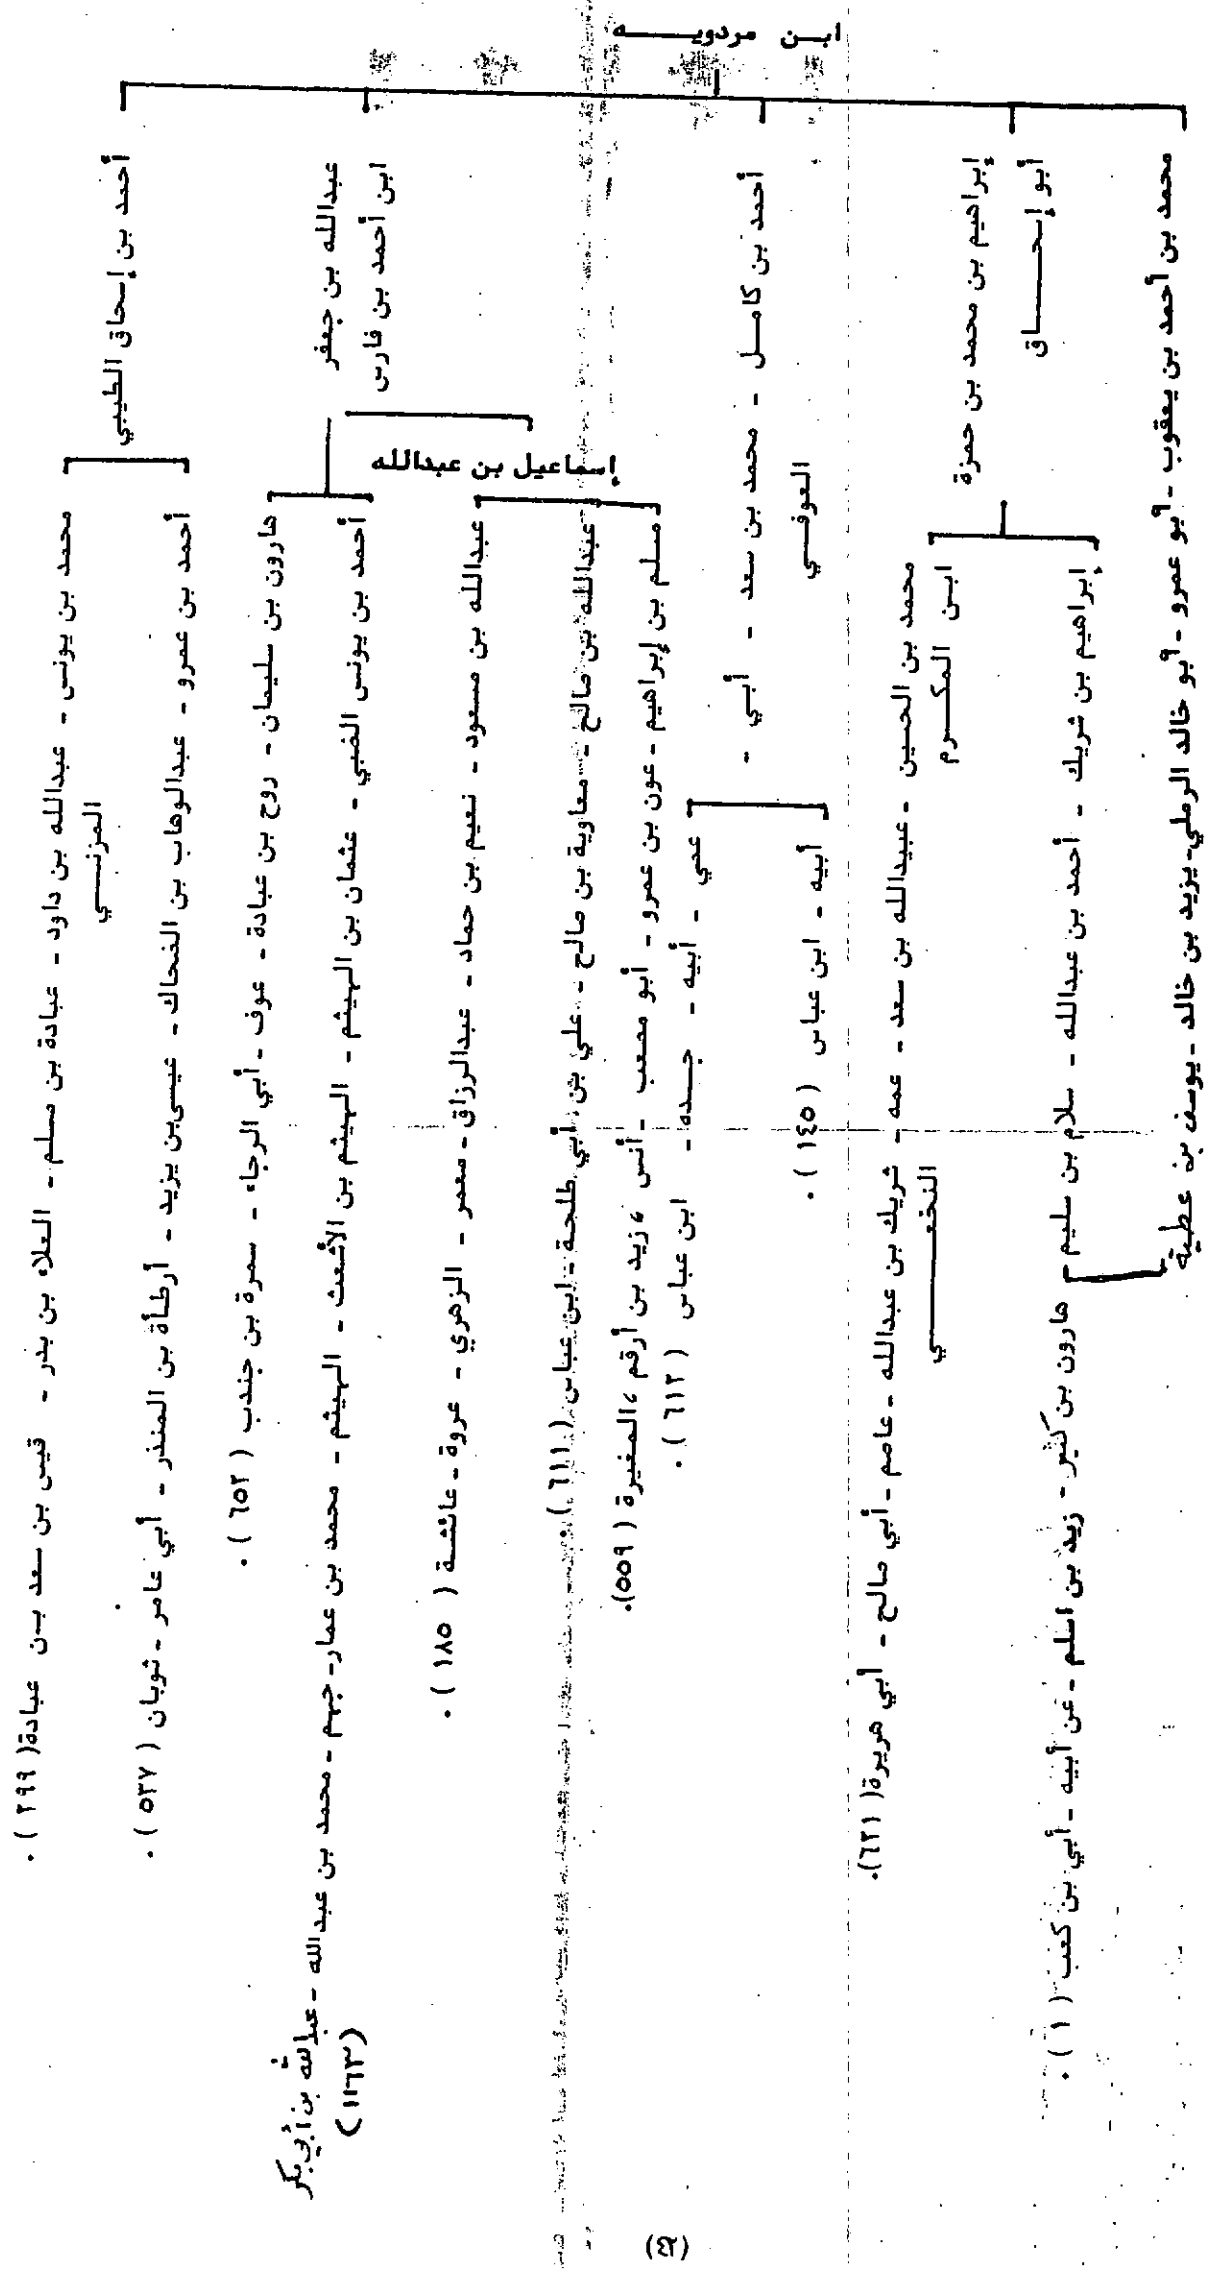 ابن مردويه
محمد بن أحمد بن يعقوب - أبو عمرو - أبو خالد الرملي - يزيد بن خالد - يوسف بن عطية
هارون بن كثير - زيد بن اسلم - عن أبيه - أبي بن كعب ( ١ ) .
أبو إسحاق
إبراهيم بن محمد بن حمزة
إبراهيم بن شريك - أحمد بن عبدالله - سلام بن سليم
محمد بن الحسين - عبيدالله بن سعد - عمه - شريك بن عبدالله - عاصم - أبي صالح - أبي هريرة ( ٦٢١ ) .
ابن المكرم
النخعي
أحمد بن كامل - محمد بن سعد - أبي -
العوفي
أبيه - ابن عباس ( ١٤٥ ) .
عمي - أبيه - جده - ابن عباس ( ٦١٢ ) .
عبدالله بن جعفر
ابن أحمد بن فارس
إسماعيل بن عبدالله
مسلم بن إبراهيم - عون بن عمرو - أبو مصعب - أنس ، زيد بن أرقم ، المغيرة ( ٥٥٩ ) .
عبدالله بن صالح - معاوية بن صالح - علي بن أبي طلحة - ابن عباس ( ٦١١ ) .
عبدالله بن مسعود - نعيم بن حماد - عبدالرزاق - معمر - الزهري - عروة - عائشة ( ١٨٥ ) .
أحمد بن يونس الضبي - عثمان بن الهيثم - الهيثم بن الأشعث - الهيثم - محمد بن عمار - جهم - محمد بن عبدالله - عبدالله بن أبي بكر
( ١١٦٣ )
هارون بن سليمان - روح بن عبادة - عوف - أبي الرجاء - سمرة بن جندب ( ٦٥٢ ) .
أحمد بن إسحاق الطيبي
أحمد بن عمرو - عبدالوهاب بن الضحاك - عيسى بن يزيد - أرطأة بن المنذر - أبي عامر - ثوبان ( ٥٣٧ ) .
محمد بن يونس - عبدالله بن داود - عبادة بن مسلم - العلاء بن بدر - قيس بن سعد بن عبادة ( ٢٩٩ ) .
المزني